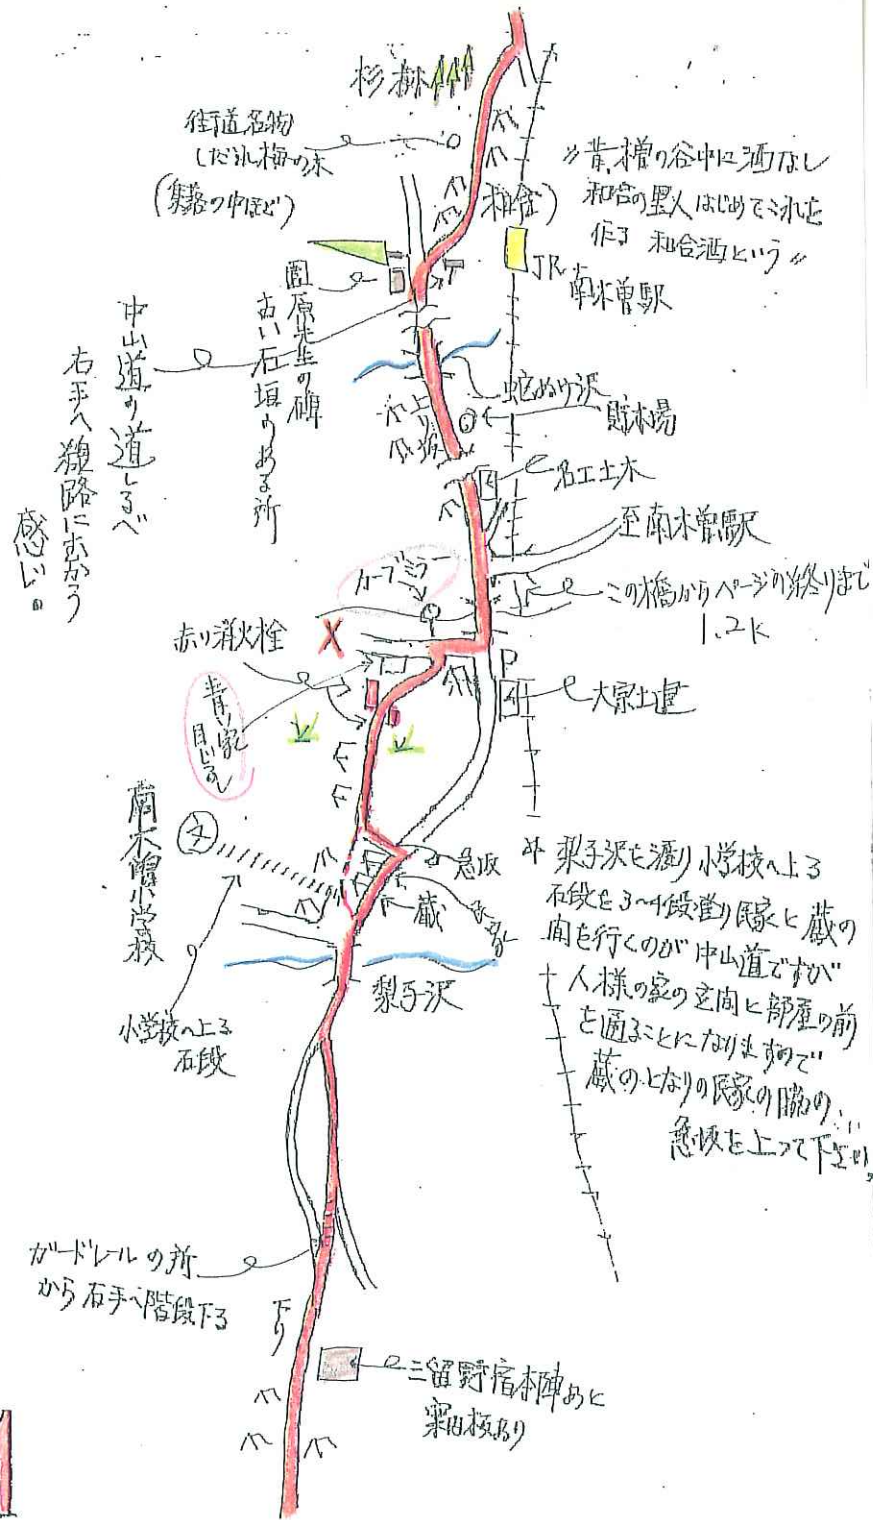 杉林
街道名物
しだれ梅の木
(集落の中ほど)
(和合)
〃昔木檜の谷中に酒なし
和合の里人はじめてこれを
作る 和合酒という〃
JR
南木曽駅
園原先生の碑
古い石垣のある所
中山道の道しるべ
右手へ線路にむかう
感じ。
蛇ぬけ沢
貯木場
上り坂
名工土木
至南木曽駅
カーブミラー
この橋からページの終りまで
1.2K
赤い消火栓
X
P
青い家
目じるし
大宗土建
南木曽小学校
文
急坂
蔵
小学校へ上る
石段
梨子沢
梨子沢を渡り小学校へ上る
石段を3〜4段登り民家と蔵の
間を行くのが中山道ですが
人様の家の玄関と部屋の前
を通ることになりますので
蔵のとなりの民家の脇の
急坂を上って下さい。
ガードレールの所
から右手へ階段下る
下り
三留野宿本陣あと
案内板あり